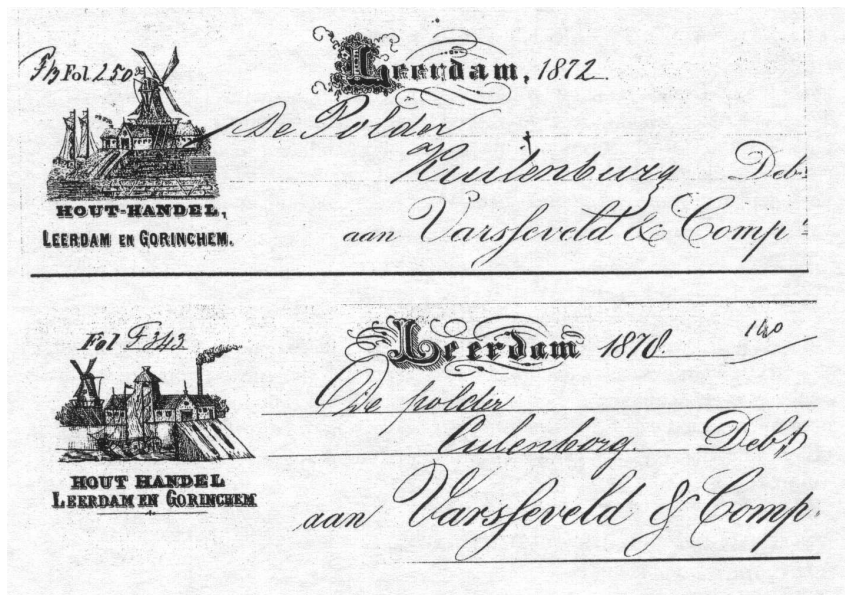 Fol 250
Leerdam, 1872
De Polder
Kuilenburg Deb.
HOUT-HANDEL,
LEERDAM EN GORINCHEM.
aan Varsseveld & Comp
Fol F343
Leerdam 1878.
De polder
Culenborg. Debt
HOUT HANDEL
LEERDAM EN GORINCHEM
aan Varsseveld & Comp.